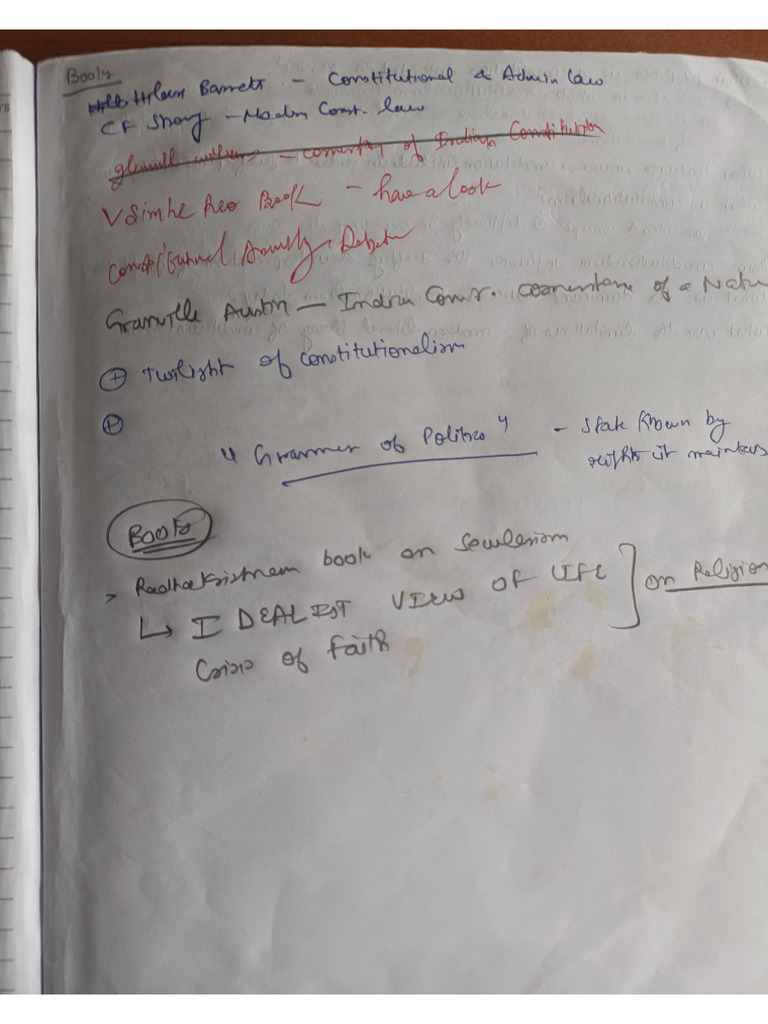 Books
Hilam Barnets - Constitutional & Admin law
CF Strong - Modrn Const. law
- comentry of Indian Constitution
V Simhe Reo Book - have a look
Constitutunal Assmbly Debate
Granville Austin - Indian Consr. coornerstone of a Natu
+ Twilight of constitutionalism
+
"Grammer of Politics" - State known by
rights it maintains
Books
> Radhakrishnan book on Seculerism
↳ IDEALIST VIEW OF LIFE ] on Religion
Crisis of Faith